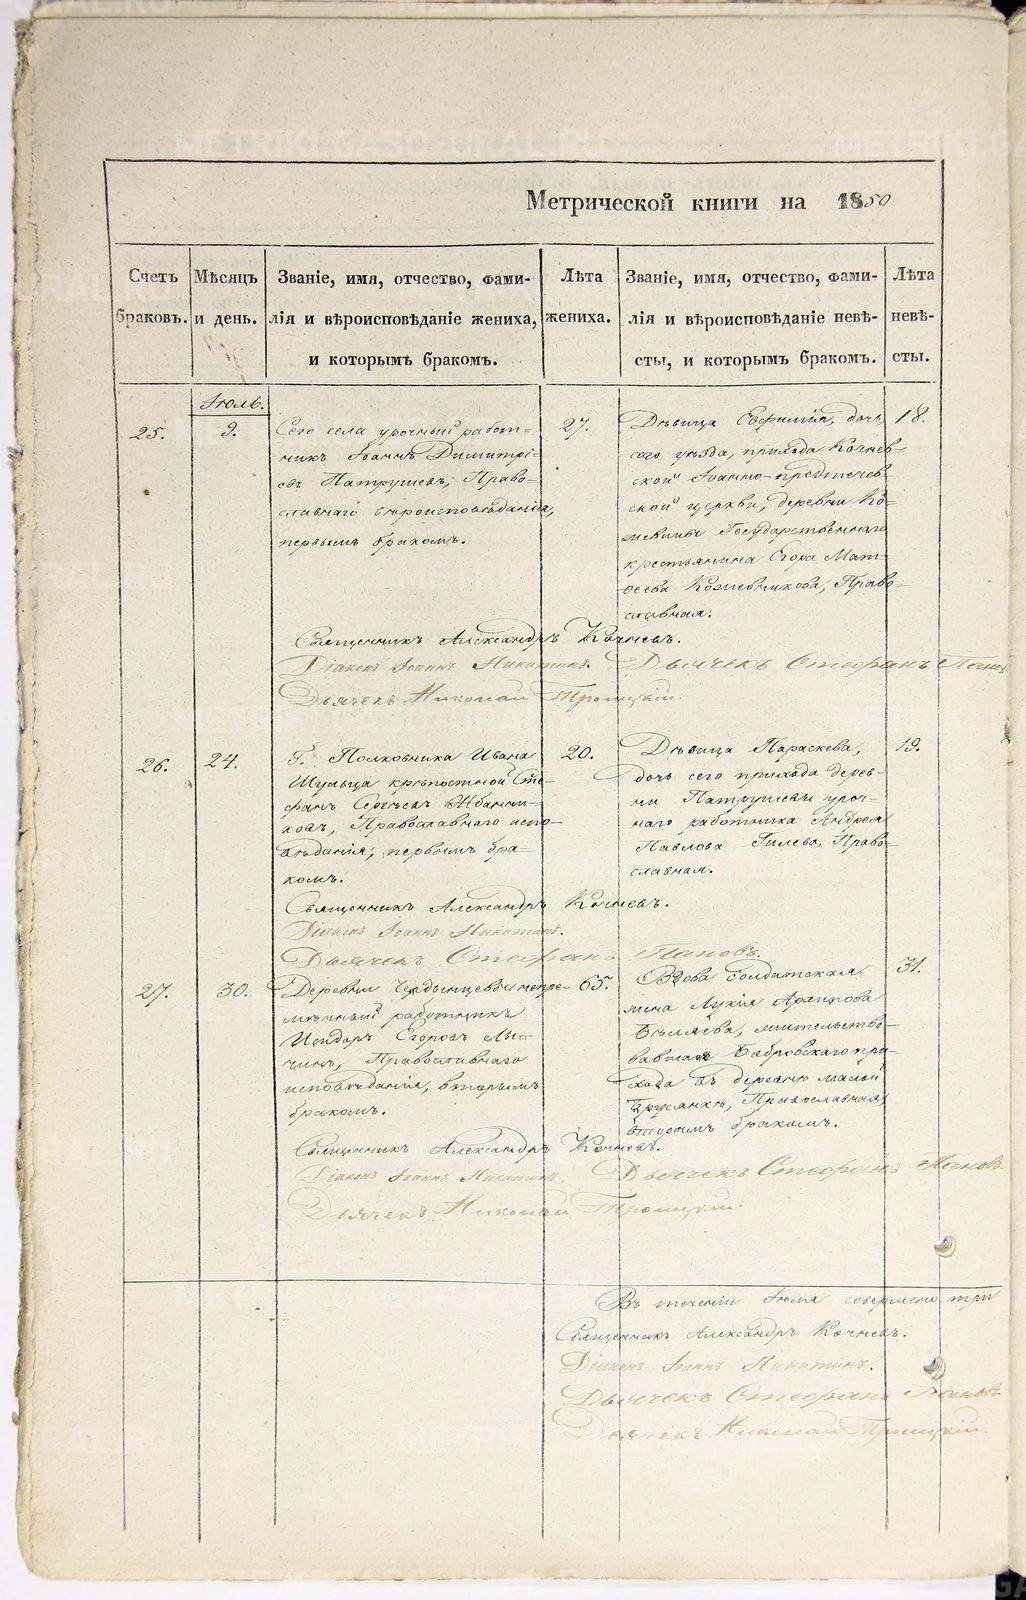 Метрической книги на 1850
Счетъ браковъ.
Мѣсяцъ и день.
Званіе, имя, отчество, фами-
лія и вѣроисповѣданіе жениха,
и которымъ бракомъ.
Лѣта жениха.
Званіе, имя, отчество, фами-
лія и вѣроисповѣданіе невѣ-
сты, и которымъ бракомъ.
Лѣта невѣ-
сты.
Іюль.
25.
9.
Сего села урочный работ-
никъ Іоаннъ Димитрі-
евъ Патрушевъ, Право-
славнаго вѣроисповѣданія,
первымъ бракомъ.
27.
Дѣвица Евфимія, дочь
сего уѣзда, прихода Кочнев-
ской Іоанно-предтечев-
ской церкви, деревни
Государственнаго
крестьянина Егора Мат-
ѳеева Кожевникова, Право-
славная.
18.
Священникъ Александръ Кочневъ.
Діаконъ Іоаннъ Никитинъ. Дьячекъ Стефанъ Пановъ
Дьячекъ Николай Троицкій.
26.
24.
Г. Полковника Ивана
Шульца крѣпостной Сте-
фанъ Сергѣевъ Жбанни-
ковъ, Православнаго испо-
вѣданія, первымъ бра-
комъ.
20.
Дѣвица Параскева,
дочь сего прихода дерев-
ни Патрушевы уроч-
наго работника Андрея
Павлова Гилева, Право-
славная.
19.
Священникъ Александръ Кочневъ.
Діаконъ Іоаннъ Никитинъ.
Дьячекъ Стефанъ Пановъ.
27.
30.
Деревни непре-
мѣнный работникъ
Исидоръ Егоровъ
Православнаго
исповѣданія, вторымъ
бракомъ.
65.
Вдова Солдатская
жена Лукія Архипова
Бѣляева, жительство-
вавшая Бобровскаго при-
хода въ деревню малой
Брусянкѣ, Православная,
вторымъ бракомъ.
31.
Священникъ Александръ Кочневъ.
Діаконъ Іоаннъ Никитинъ. Дьячекъ Стефанъ Пановъ
Дьячекъ Николай Троицкій.
Въ теченіи Іюля совершено три
Священникъ Александръ Кочневъ.
Діаконъ Іоаннъ Никитинъ.
Дьячекъ Стефанъ Пановъ
Дьячекъ Николай Троицкій.